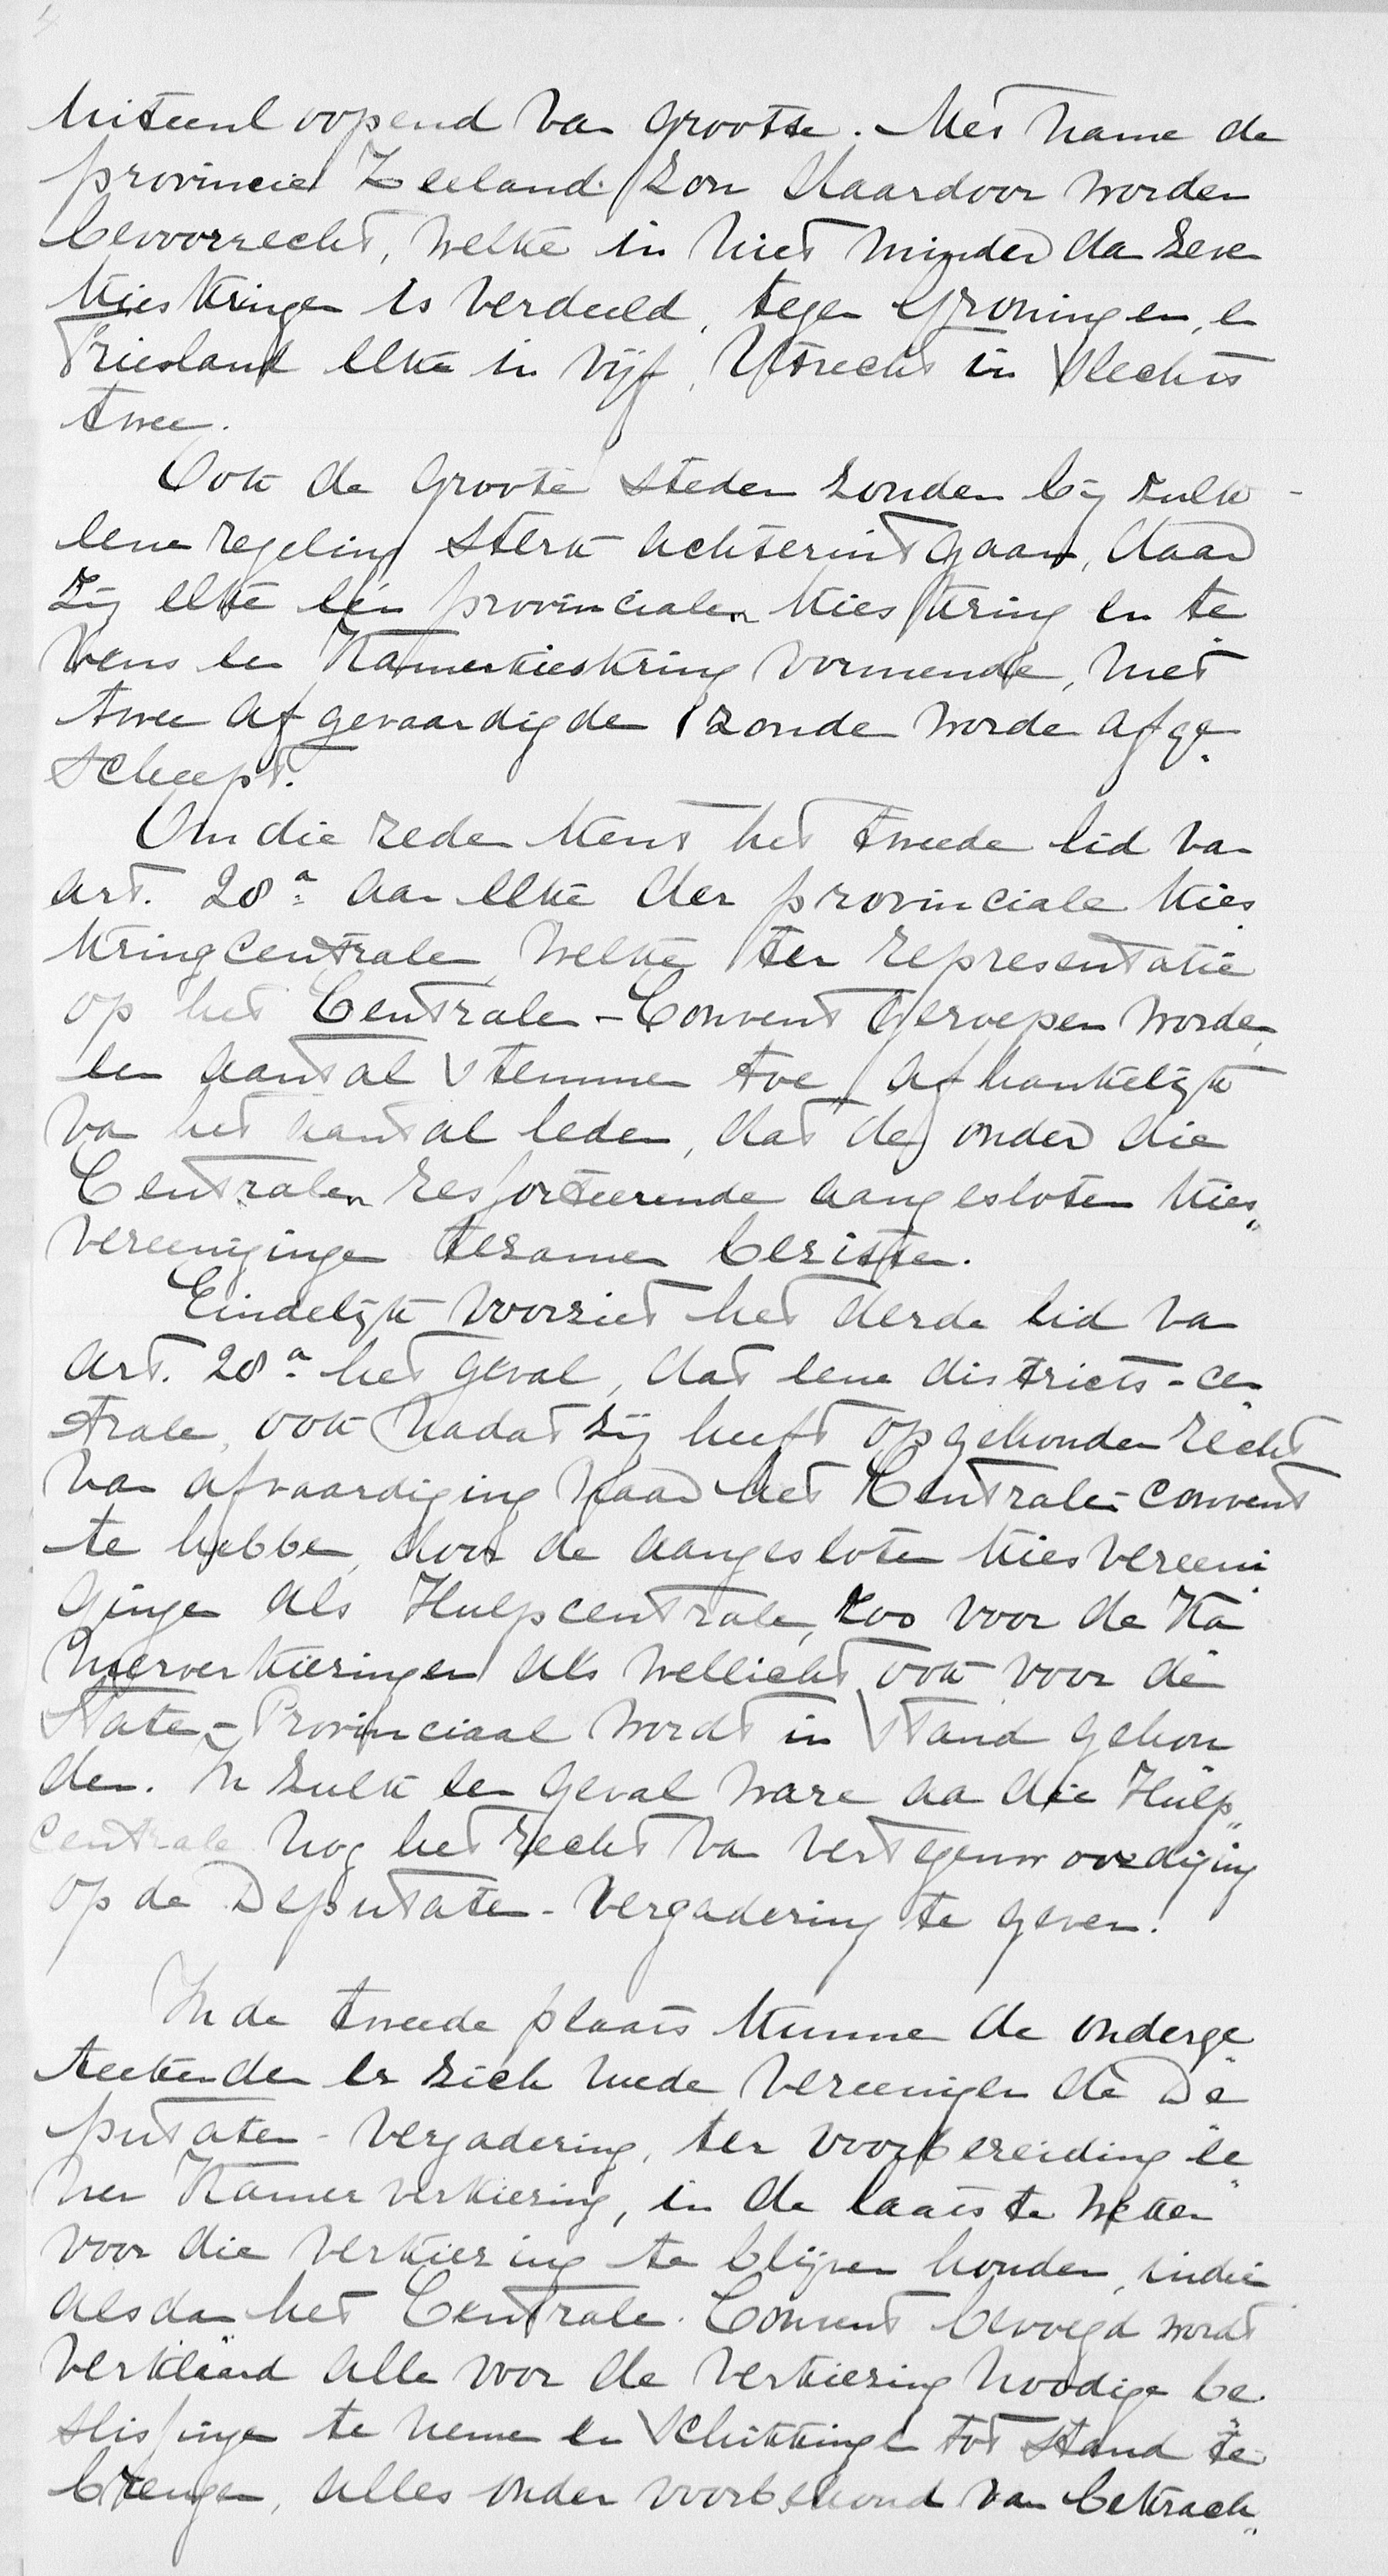 uiteenloopend van grootte. Met name de
provincie Zeeland zou daardoor worden
bevoorrecht, welke in niet minder dan zeven
kieskringen is verdeeld, tegen Groningen en
Friesland elke in vijf, Utrecht in slechts
twee.
Ook de groote steden zouden bij zulk
eene regeling sterk achteruitgaan, daar
zij elke één provincialen kieskring en te
vens een Kamerkieskring vormende, met
twee afgevaardigden zouden worden afge„
scheept.
Om die reden kent het tweede lid van
art. 28a aan elke der provinciale kies
kringcentralen, welke ter representatie
op het Centralen-Convent geroepen worden,
een aantal stemmen toe, afhankelijk
van het aantal leden, dat de onder die
Centralen ressorteerende aangesloten kies„
vereenigingen tezamen bezitten.
Eindelijk voorziet het derde lid van
art. 28a het geval, dat eene districts-cen
trale, ook nadat zij heeft opgehouden recht
van afvaardiging naar het Centralen-convent
te hebben, door de aangesloten kiesvereeni
gingen als Hulpcentrale, zoo voor de Ka
merverkiezingen als wellicht ook voor de
Staten-Provinciaal wordt in stand gehou
den. In zulk een geval ware aan die Hulp„
centrale nog het recht van vertegenwoordiging
op de Deputaten-vergadering te geven.
In de tweede plaats kunnen de onderge
teekenden er zich mede vereenigen de De
putaten-vergadering, ter voorbereiding ee
ner Kamerverkiezing, in de laatste weken
voor die verkiezing te blijven houden, indien
alsdan het Centralen-Convent bevoegd wordt
verklaard alle voor de verkiezing noodige be„
slissingen te nemen en schikkingen tot stand te
brengen, alles onder voorbehoud van bekrach„